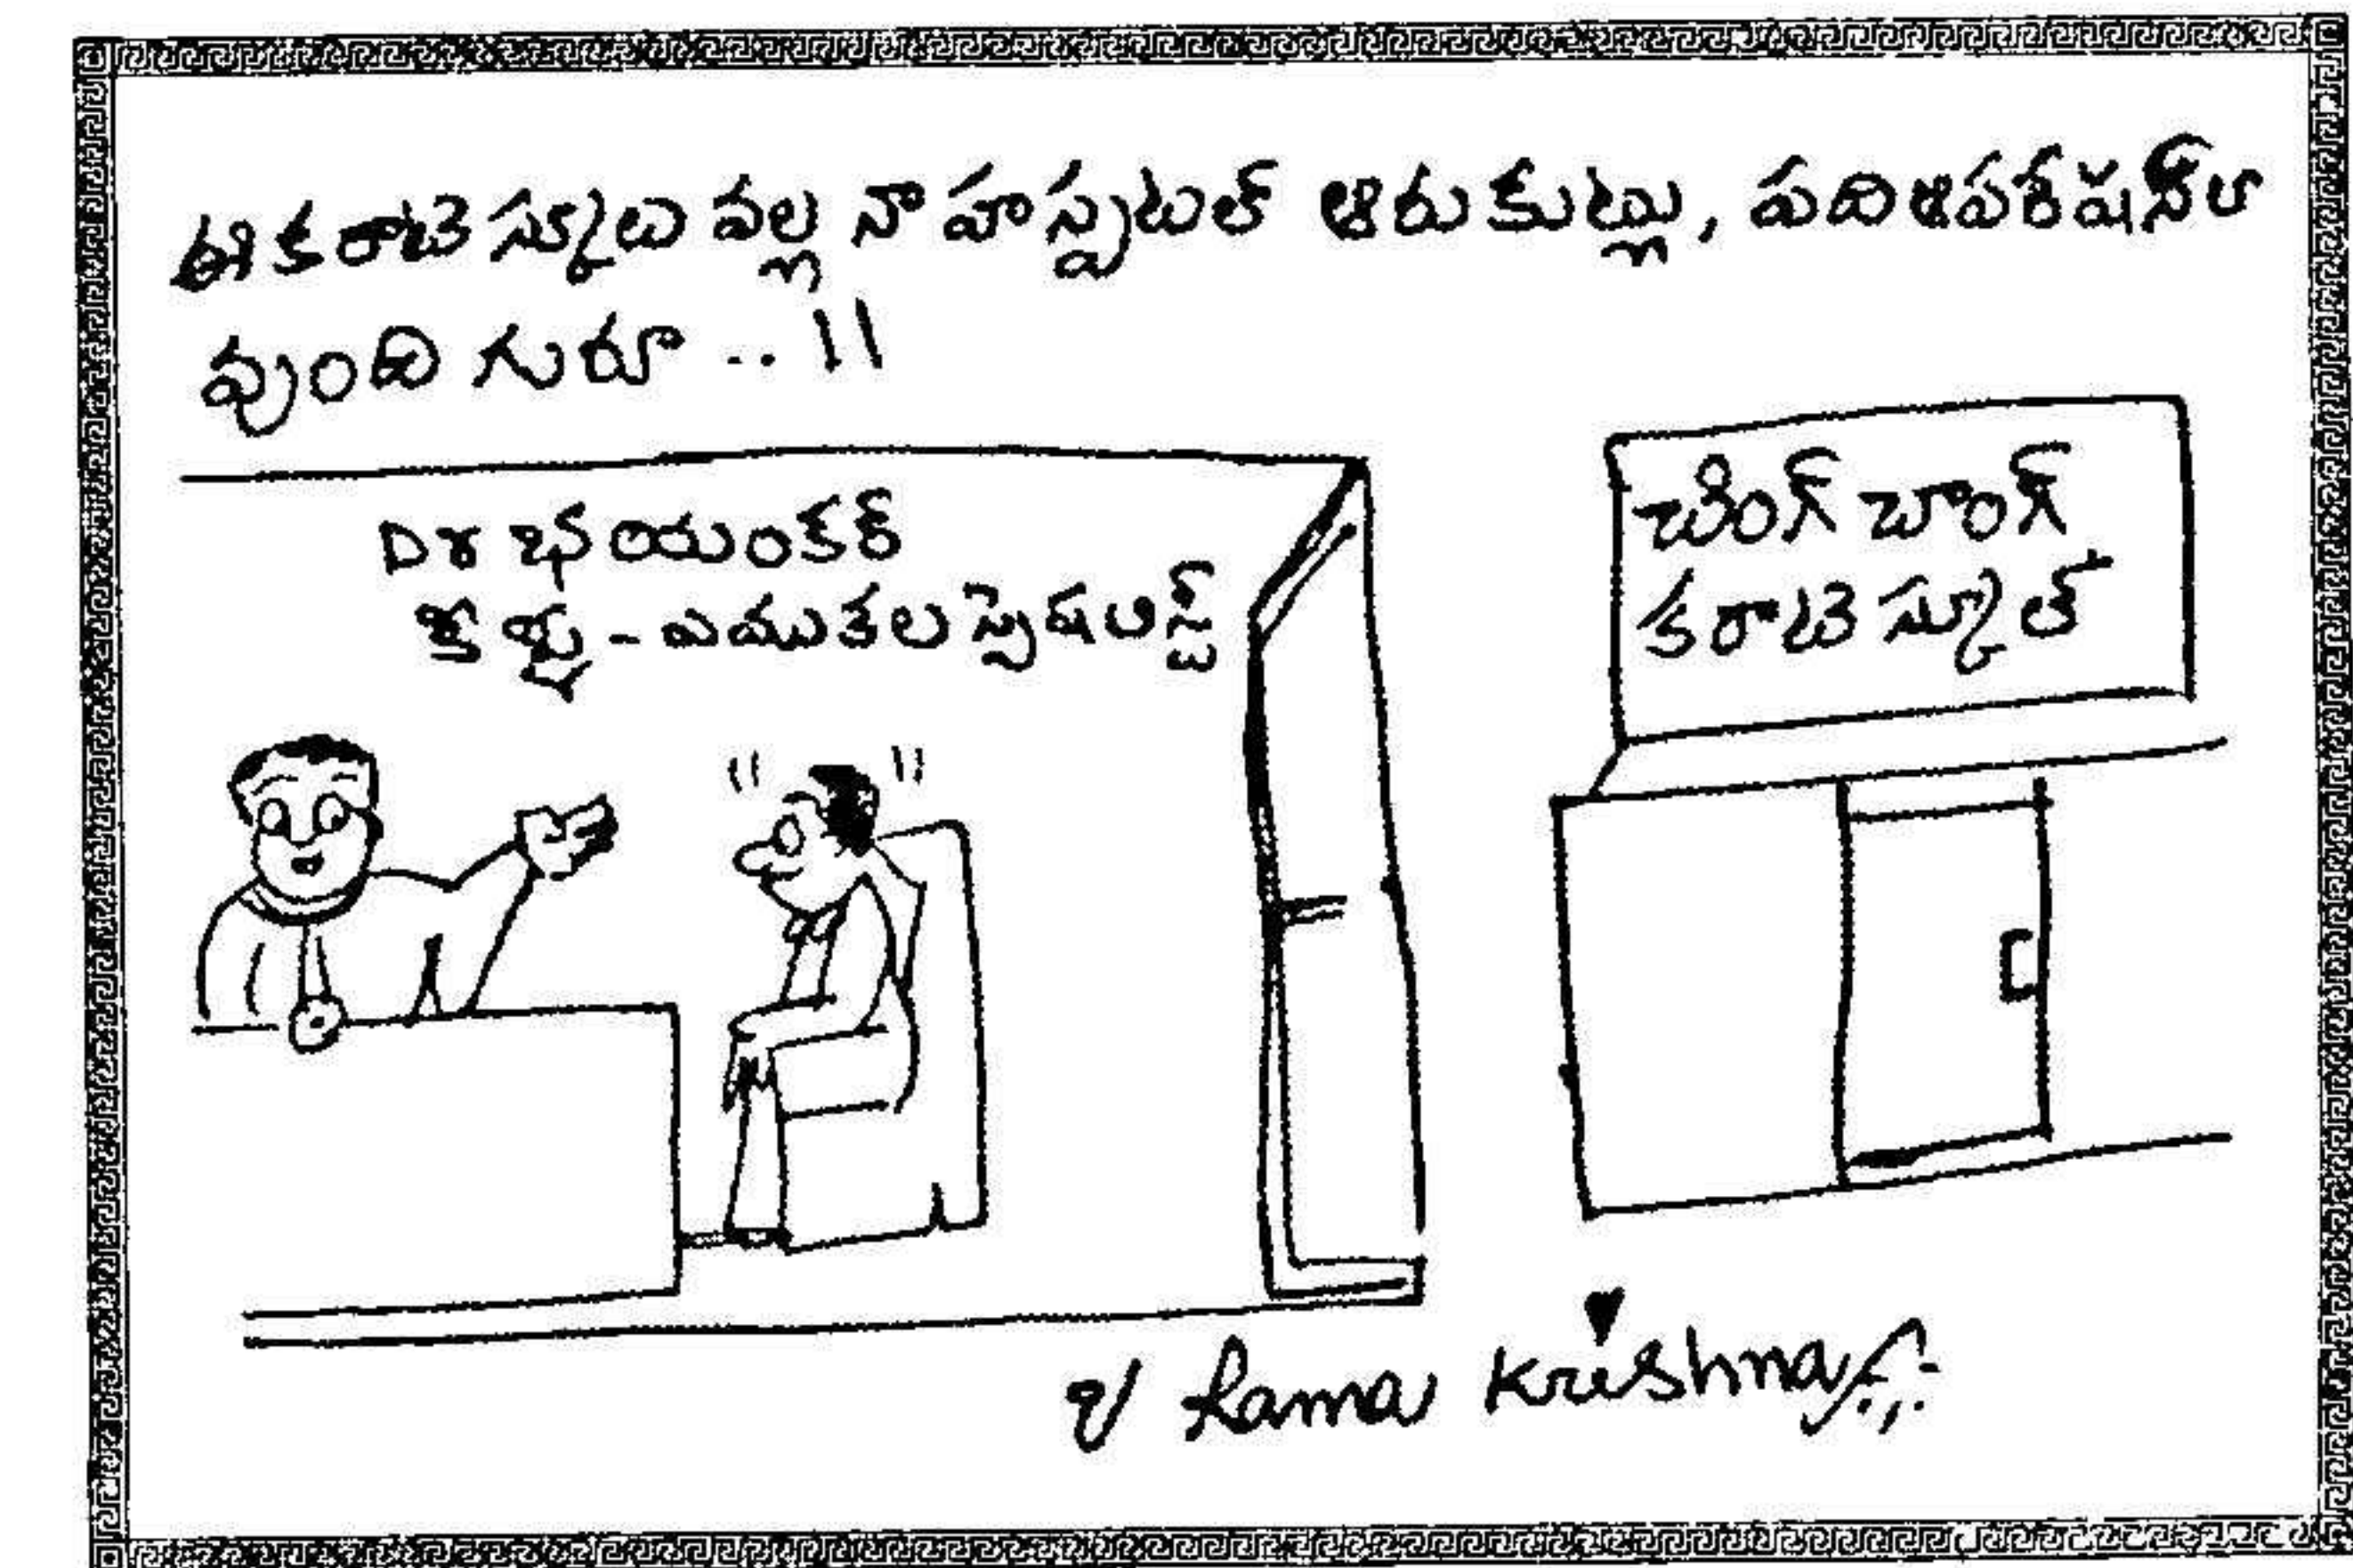 ఈ కరాటె స్కూలు వల్ల నా హాస్పటల్ ఆరు కుట్లు, పది ఆపరేషన్ లా
వుంది గురూ ..!!
Dr భయంకర్
కీళ్ళ - ఎముకల స్పెషలిస్ట్
చింగ్ చాంగ్
కరాటె స్కూల్
Rama Krishna